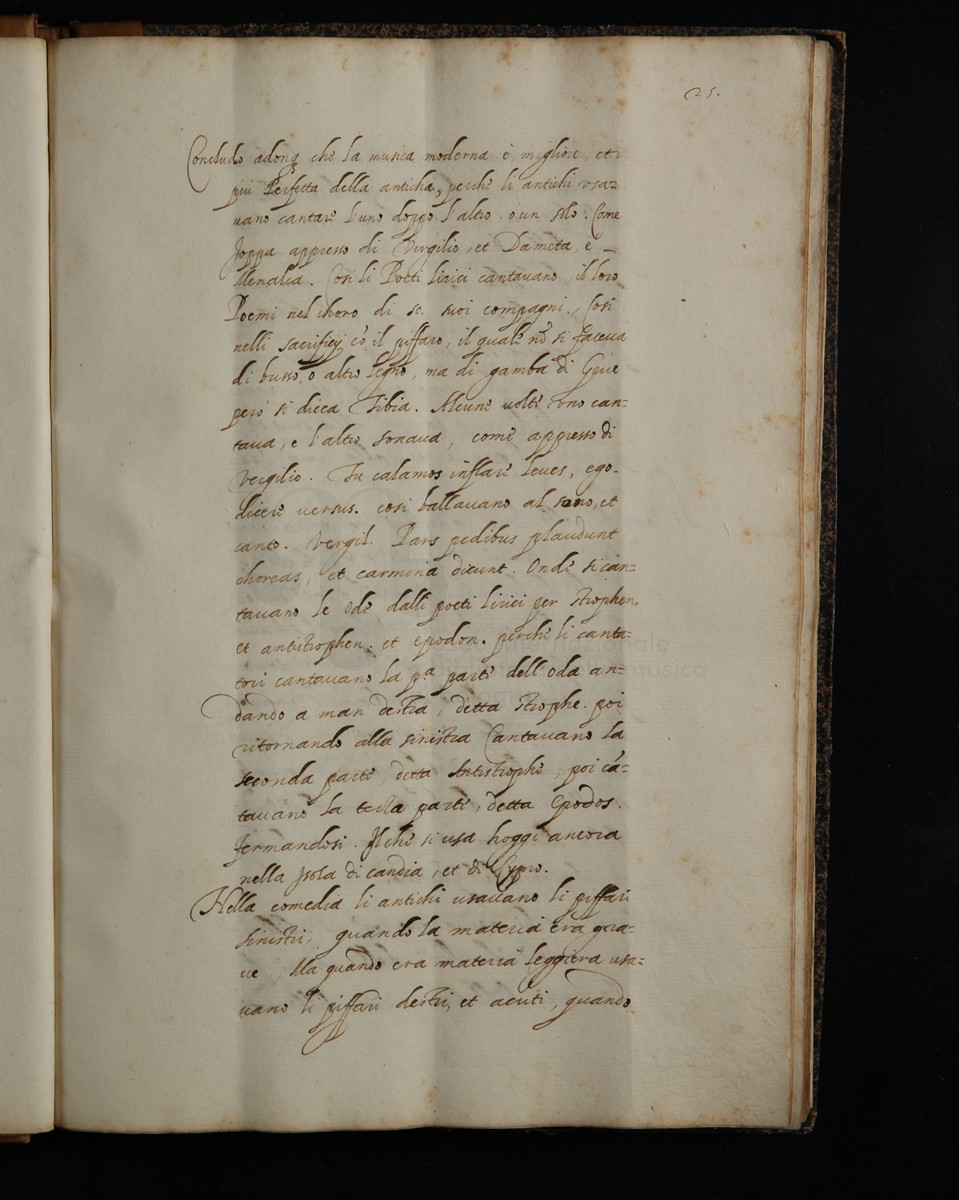 25.
Concludo adonq che la musica moderna è migliore, et
piu Perfetta della anticha, perche li antichi usa=
uano cantare l'uno doppo l'altro, o un solo. Come
Joppa appresso di Virgilio, et Dameta, e
Menalca. Cosi li Poeti lirici cantauano, il loro
Poemi nel choro di so. suoi compagni. Cosi
nelli sacrificij cō il piffaro, il quale nō si faceua
di busso, o altro legno, ma di gamba di Grue
però si dicea Tibia. Alcune volte uno can=
taua, e l'altro sonaua, come appresso di
Vergilio. Tu calamos inflare leues, ego
dicere versus. cosi ballauano al sono, et
canto. Vergil. Pars pedibus plaudunt
choreas, et carmina dicunt. Onde si can=
tauano le Ode dalli poeti lirici per strophen,
et antistrophen, et epodon. perche li canta=
tori cantauano la pa. parte dell'oda an=
dando a man destra, detta strophe. poi
ritornando alla sinistra Cantauano la
seconda parte, detta Antistrophe, poi cā=
tauano la terza parte, detta Epodos.
fermandosi. Il che si usa hoggi ancora
nella Isola di candia, et di Cypro.
Nella comedia li antichi usauano li piffari
sinistri, quando la materia era gra=
ue, Ma quando era materia leggiera usa=
uano li piffari destri, et acuti, quando